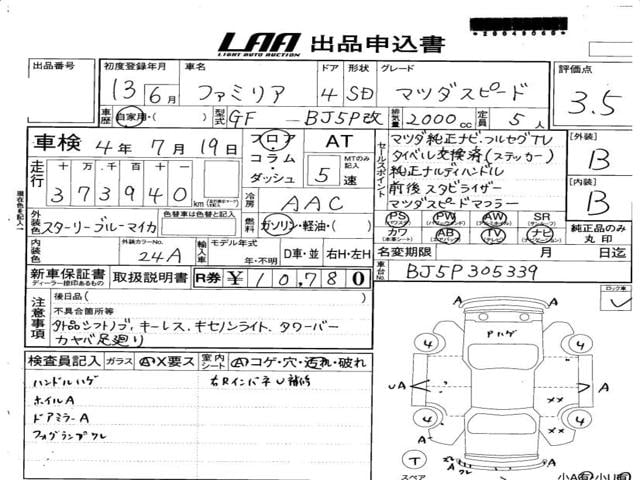 LAA 出品申込書
LIGHT AUTO AUCTION
出品番号
初度登録年月 車名 ドア 形状 グレード 評価点
13 6月 ファミリア 4 SD マツダスピード 3.5
車歴 自家用・( ) 型式 GF - BJ5P改 排気量 2000cc 定員 5人
車検 4年7月19日
フロア AT
コラム・ダッシュ 5速 MTのみ記入
セールスポイント
マツダ純正ナビ.フルセグTV
タイベル交換済(ステッカー)
純正ナルディハンドル
前後スタビライザー
マツダスピードマフラー
[外装] B
[内装] B
走行 十 万 千 百 十
373940 km
冷房 AAC
PS PW AW SR
カワ AB TV ナビ
純正品のみ丸印
現在色を記入
外装色 スターリーブルーマイカ 色替車は色替と記入
燃料 ガソリン・軽油・( )
名変期限 月 日迄
内装色 外装カラーNo. 24A 輸入車 モデル年式 年・不明 D車・並 右H・左H
車台No. BJ5P305339
新車保証書 取扱説明書 R券 ¥10,780
ディーラー捺印あるもの
ロック車
注意事項
後日品( )
不具合箇所等
外品シフトノブ、キーレス、キセノンライト、タワーバー
カヤバ足廻り
検査員記入 ガラス A X要ス 室内シート A コゲ・穴・汚れ・破れ
ハンドルハゲ 右Rインパネ U補修
ホイルA
ドアミラーA
フォグランプワレ
A A
Pハゲ
4 4
UA A
×× ××
4 4
A
T
スペア
A
A
小A有 小U有